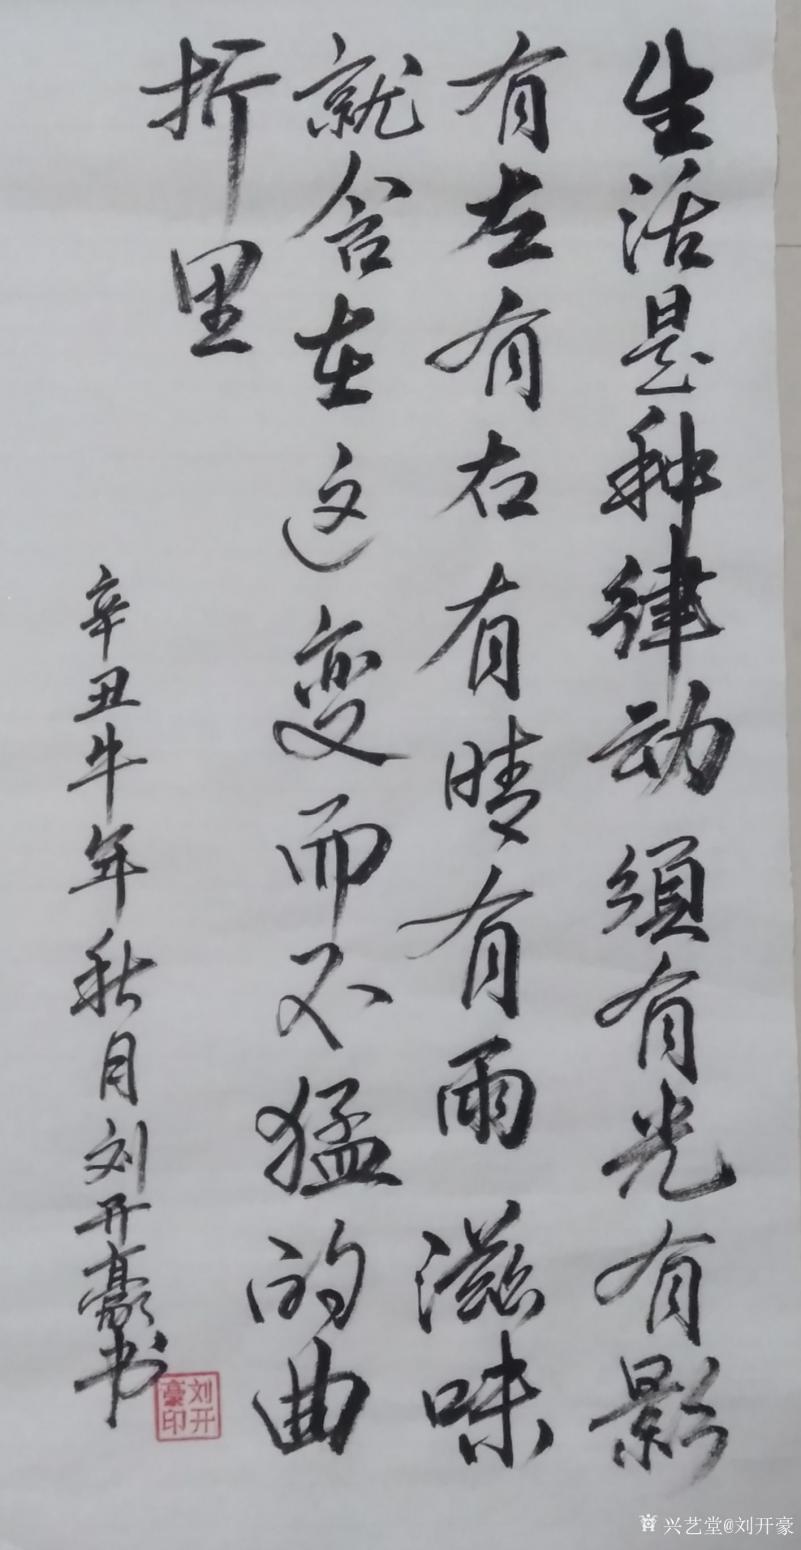 生活是种律动须有光有影
有左有右有晴有雨滋味
就含在这变而不猛的曲
折里
辛丑牛年秋月刘开豪书
刘开豪印
兴艺堂@刘开豪